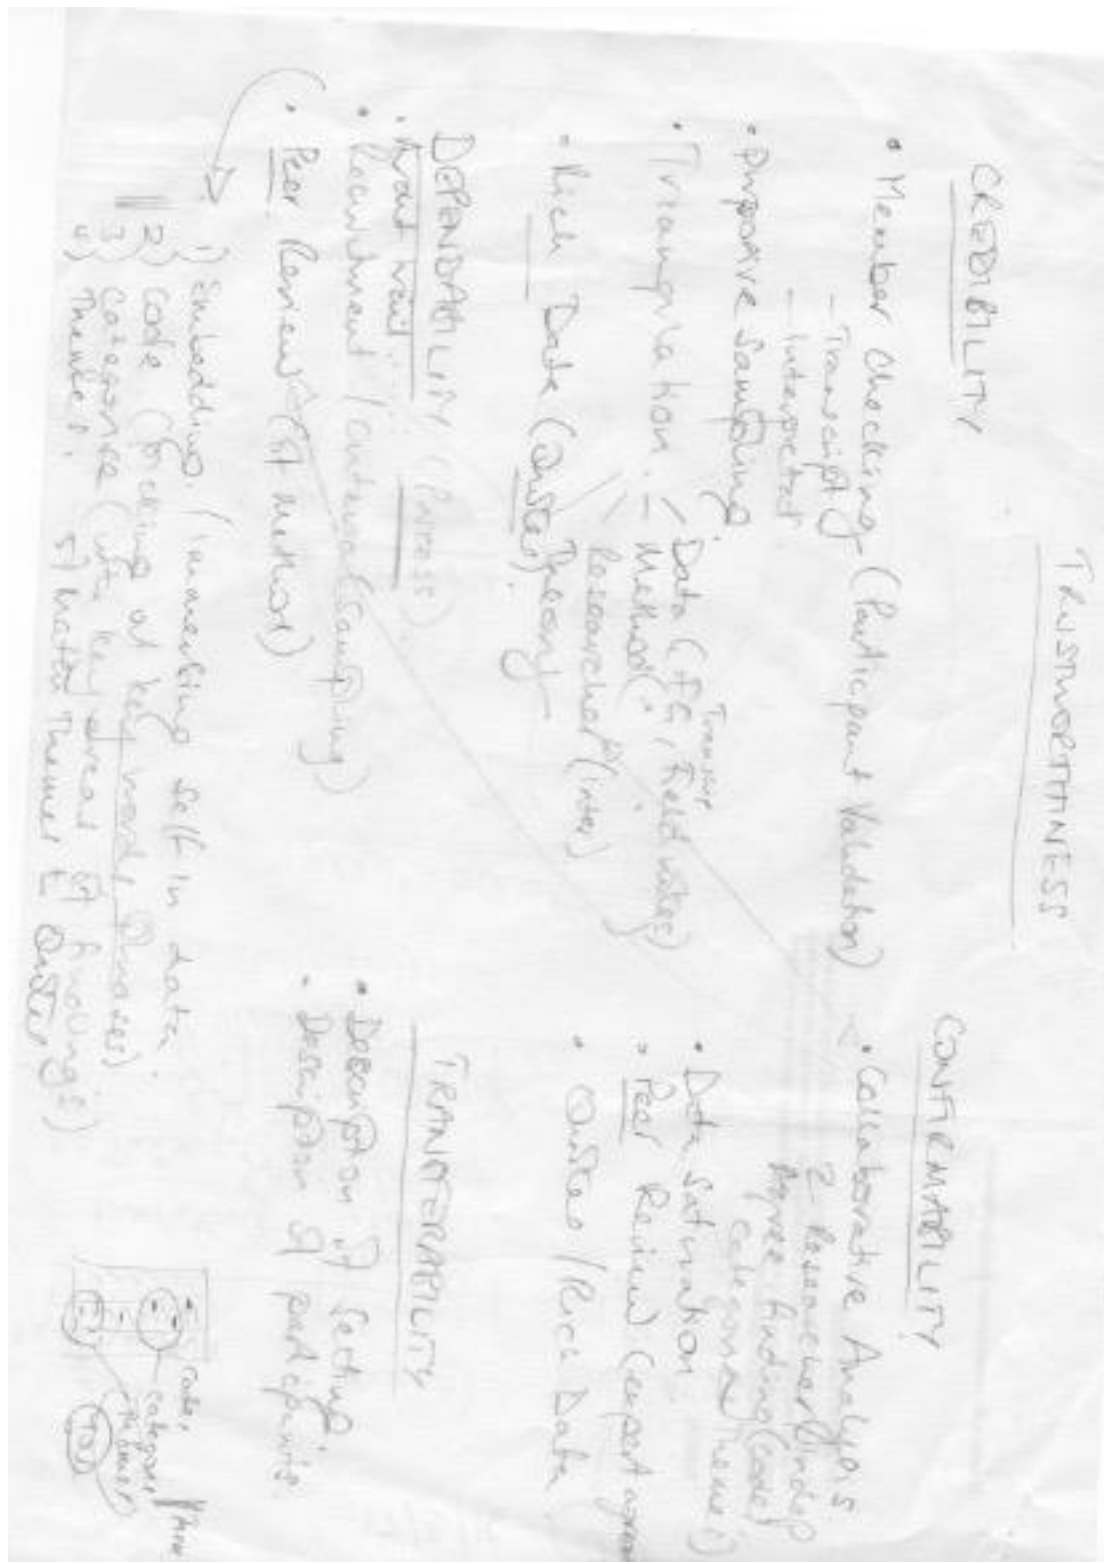 TRUSTWORTHINESS
CREDIBILITY
• Member Checking (Participant Validation)
- Transcript
- Interpreted
• Purposive Sampling
• Triangulation
- Data (FG, Field notes)
Transcrip
- Method
Researcher (inter)
Theory
• Rich Data (Quotes)
DEPENDABILITY (Process)
• Audit trail
• Recruitment / criteria (Sampling)
• Peer Review (of method)
1) Embedding / immersing self in data
2) Code (picking out key words, phrases)
3) Categorise (into key areas of findings)
4) Themes.
5) Match Themes
CONFIRMABILITY
• Collaborative Analysis
2 Researchers indep
Agree finding (codes
category themes)
• Data Saturation
• Peer Review (expert
• Quotes / Rich Data
TRANSFERABILITY
• Description of Setting
• Description of participants
Codes
categories
themes